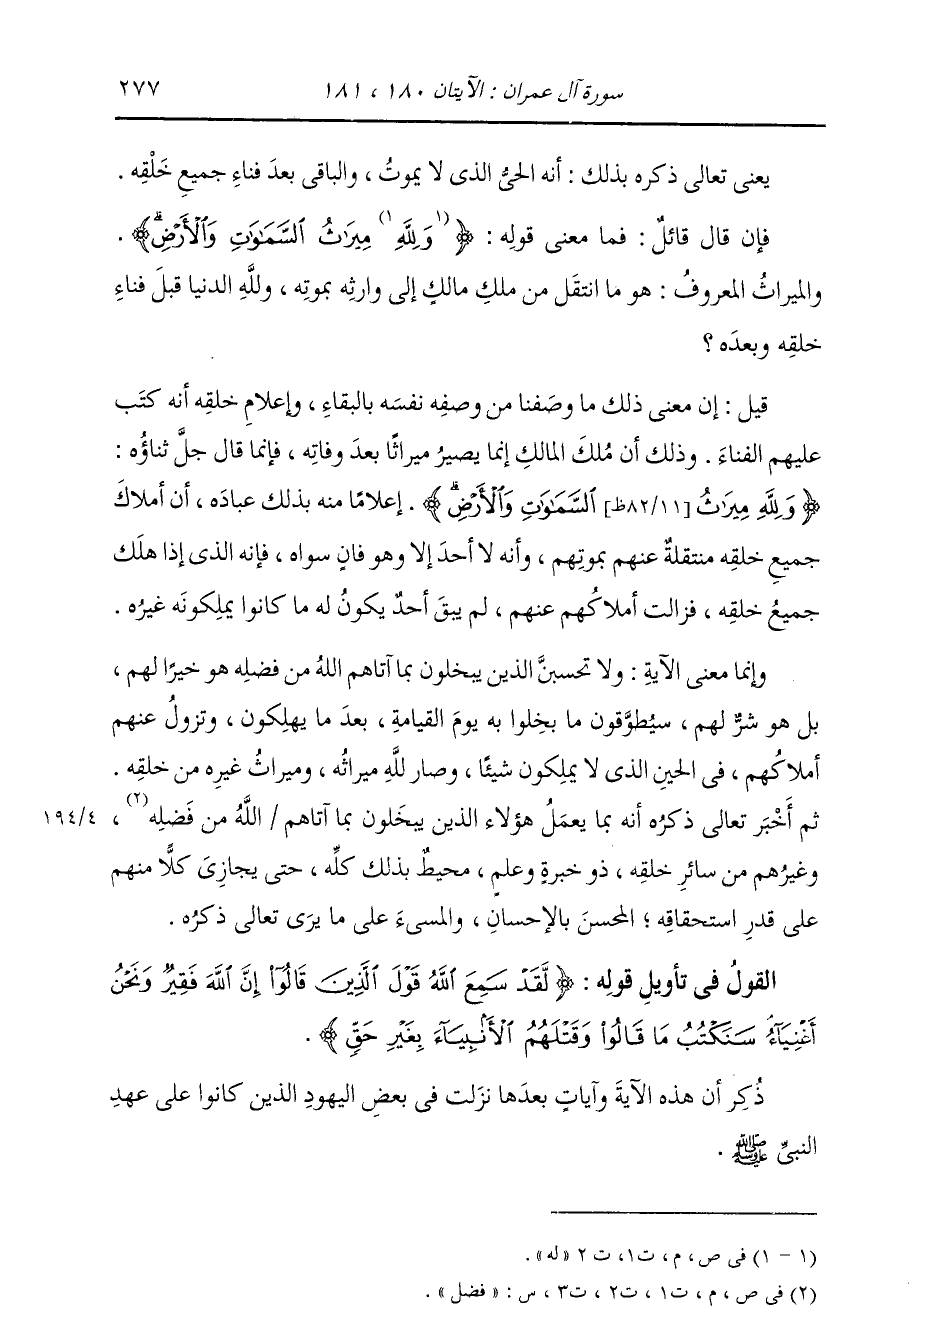 سورة آل عمران : الآيتان ١٨٠ ، ١٨١ ٢٧٧
يعنى تعالى ذكره بذلك : أنه الحىُّ الذى لا يموتُ ، والباقى بعدَ فناءِ جميعِ خَلْقِه .
فإن قال قائلٌ : فما معنى قولِه : ﴿ (١) وَلِلَّهِ (١) مِيرَٰثُ ٱلسَّمَٰوَٰتِ وَٱلْأَرْضِۗ ﴾ .
والميراثُ المعروفُ : هو ما انتقَل من ملكِ مالكٍ إلى وارثِه بموتِه ، وللَّهِ الدنيا قبلَ فناءِ
خلقِه وبعدَه ؟
قيل : إن معنى ذلك ما وصَفنا من وصفِه نفسَه بالبقاءِ ، وإعلامِ خلقِه أنه كتَب
عليهم الفناءَ . وذلك أن مُلكَ المالكِ إنما يصيرُ ميراثًا بعدَ وفاتِه ، فإنما قال جلَّ ثناؤُه :
﴿ وَلِلَّهِ مِيرَٰثُ [١١/٨٢ظ] ٱلسَّمَٰوَٰتِ وَٱلْأَرْضِۗ ﴾ . إعلامًا منه بذلك عبادَه ، أن أملاكَ
جميعِ خلقِه منتقلةٌ عنهم بموتِهم ، وأنه لا أحدَ إلا وهو فانٍ سواه ، فإنه الذى إذا هلَك
جميعُ خلقِه ، فزالت أملاكُهم عنهم ، لم يبقَ أحدٌ يكونُ له ما كانوا يملِكونَه غيرُه .
وإنما معنى الآيةِ : ولا تحسبنَّ الذين يبخلون بما آتاهم اللهُ من فضلِه هو خيرًا لهم ،
بل هو شرٌّ لهم ، سيُطوَّقون ما بخِلوا به يومَ القيامةِ ، بعدَ ما يهلِكون ، وتزولُ عنهم
أملاكُهم ، فى الحينِ الذى لا يملِكون شيئًا ، وصار للَّهِ ميراثُه ، وميراثُ غيرِه من خلقِه .
ثم أَخْبَر تعالى ذكرُه أنه بما يعمَلُ هؤلاء الذين يبخَلون بما آتاهم / اللَّهُ من فَضلِه (٢) ، ١٩٤/٤
وغيرُهم من سائرِ خلقِه ، ذو خبرةٍ وعلمٍ ، محيطٌ بذلك كلِّه ، حتى يجازِىَ كلًّا منهم
على قدرِ استحقاقِه ؛ المحسنَ بالإحسانِ ، والمسىءَ على ما يرَى تعالى ذكرُه .
القولُ فى تأويلِ قولِه : ﴿ لَّقَدْ سَمِعَ ٱللَّهُ قَوْلَ ٱلَّذِينَ قَالُوٓا۟ إِنَّ ٱللَّهَ فَقِيرٌ وَنَحْنُ
أَغْنِيَآءُ سَنَكْتُبُ مَا قَالُوا۟ وَقَتْلَهُمُ ٱلْأَنۢبِيَآءَ بِغَيْرِ حَقٍّ ﴾ .
ذُكِر أن هذه الآيةَ وآياتٍ بعدَها نزَلت فى بعضِ اليهودِ الذين كانوا على عهدِ
النبىِّ ﷺ .
(١ - ١) فى ص ، م ، ت١ ، ت ٢ « له » .
(٢) فى ص ، م ، ت١ ، ت٢ ، ت٣ ، س : « فضل » .